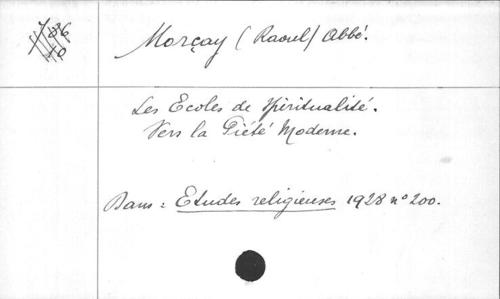 Morçay (Raoul) Abbé.
Les Ecoles de Spiritualité.
Vers la Piété Moderne.
Dans : Etudes religieuses 1928 n° 200.